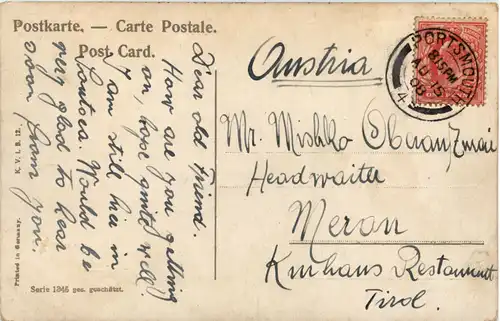 Postkarte. — Carte Postale.
Post Card.
Dear old Friend.
How are you getting
on, hope quite well.
I am still her in
Soutsea. Would be
very glad to hear
soon from you.
Austria
Mr. Mishko
Headwaiter
Meran
Kurhaus Restaurant
Tirol.
PORTSMOUTH
8.15 PM
AU 15
08
Printed in Germany.
Serie 1346 ges. geschützt.